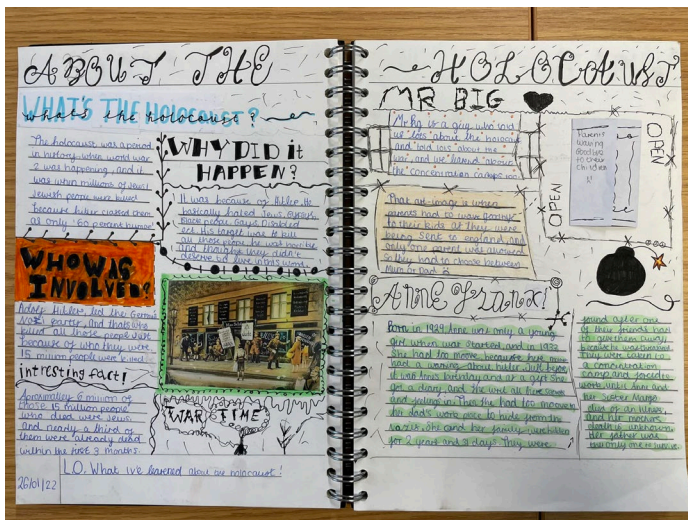 ABOUT THE
WHAT'S THE HOLOCAUST?
whats the holocaust?
The holocaust was a period
in history when world war
2 was happening, and it
was when millions of Jews/
Jewish people were killed
because hitler classed them
as only "60 percent human"
WHY DID it
HAPPEN?
It was because of Hitler. He
basically hated Jews, Gypsys,
Black people, Gays, Disabled
ect. His target was to kill
all those people. he was horrible
and thought they didn't
deserve to live in this world
WHO WAS
INVOLVED?
Adolf Hitler, led the German
Nazi party, and thats who
when all those people were
because of who they were
15 million people were killed
intresting fact!
Aproximatly 6 million of
those 15 million people
who died were Jews
and nearly a third of
them were already dead
within the first 3 months.
WAR TIME
L.O. What I've learned about the holocaust!
26/01/22
HOLOCAUST
MR BIG
Mr Ba is a guy who told
us lots about the holocaust
and told lots about the
war, and we learned about
the concentration camps too
OPEN
OPEN
Parent
waving
Goodbye
to their
children
That art-image is when
parents had to wave goodbye
to their kids as they were
being sent to england, and
only one parent was allowed
so they had to choose between
Mum or Dad
ANNE FRANK!
Born in 1929 Anne was only a young
girl when war started, and in 1933
She had too moove because here
had a warning about hitler. Just before
it was Annes birthday and as a gift She
got a diary, and She wrote all here
and feelings in. Then She had too moove to
her dad's work place to hide from the
Nazis. She and her family were hidden
for 2 years and 2 days. They were
found after one
of their friends had
to get them away
They were taken to
a concentration
camp and forced to
work, until Anne and
her Sister Margo
dies of an illness,
and her mothers
death is unknown
her father was
the only one to survive